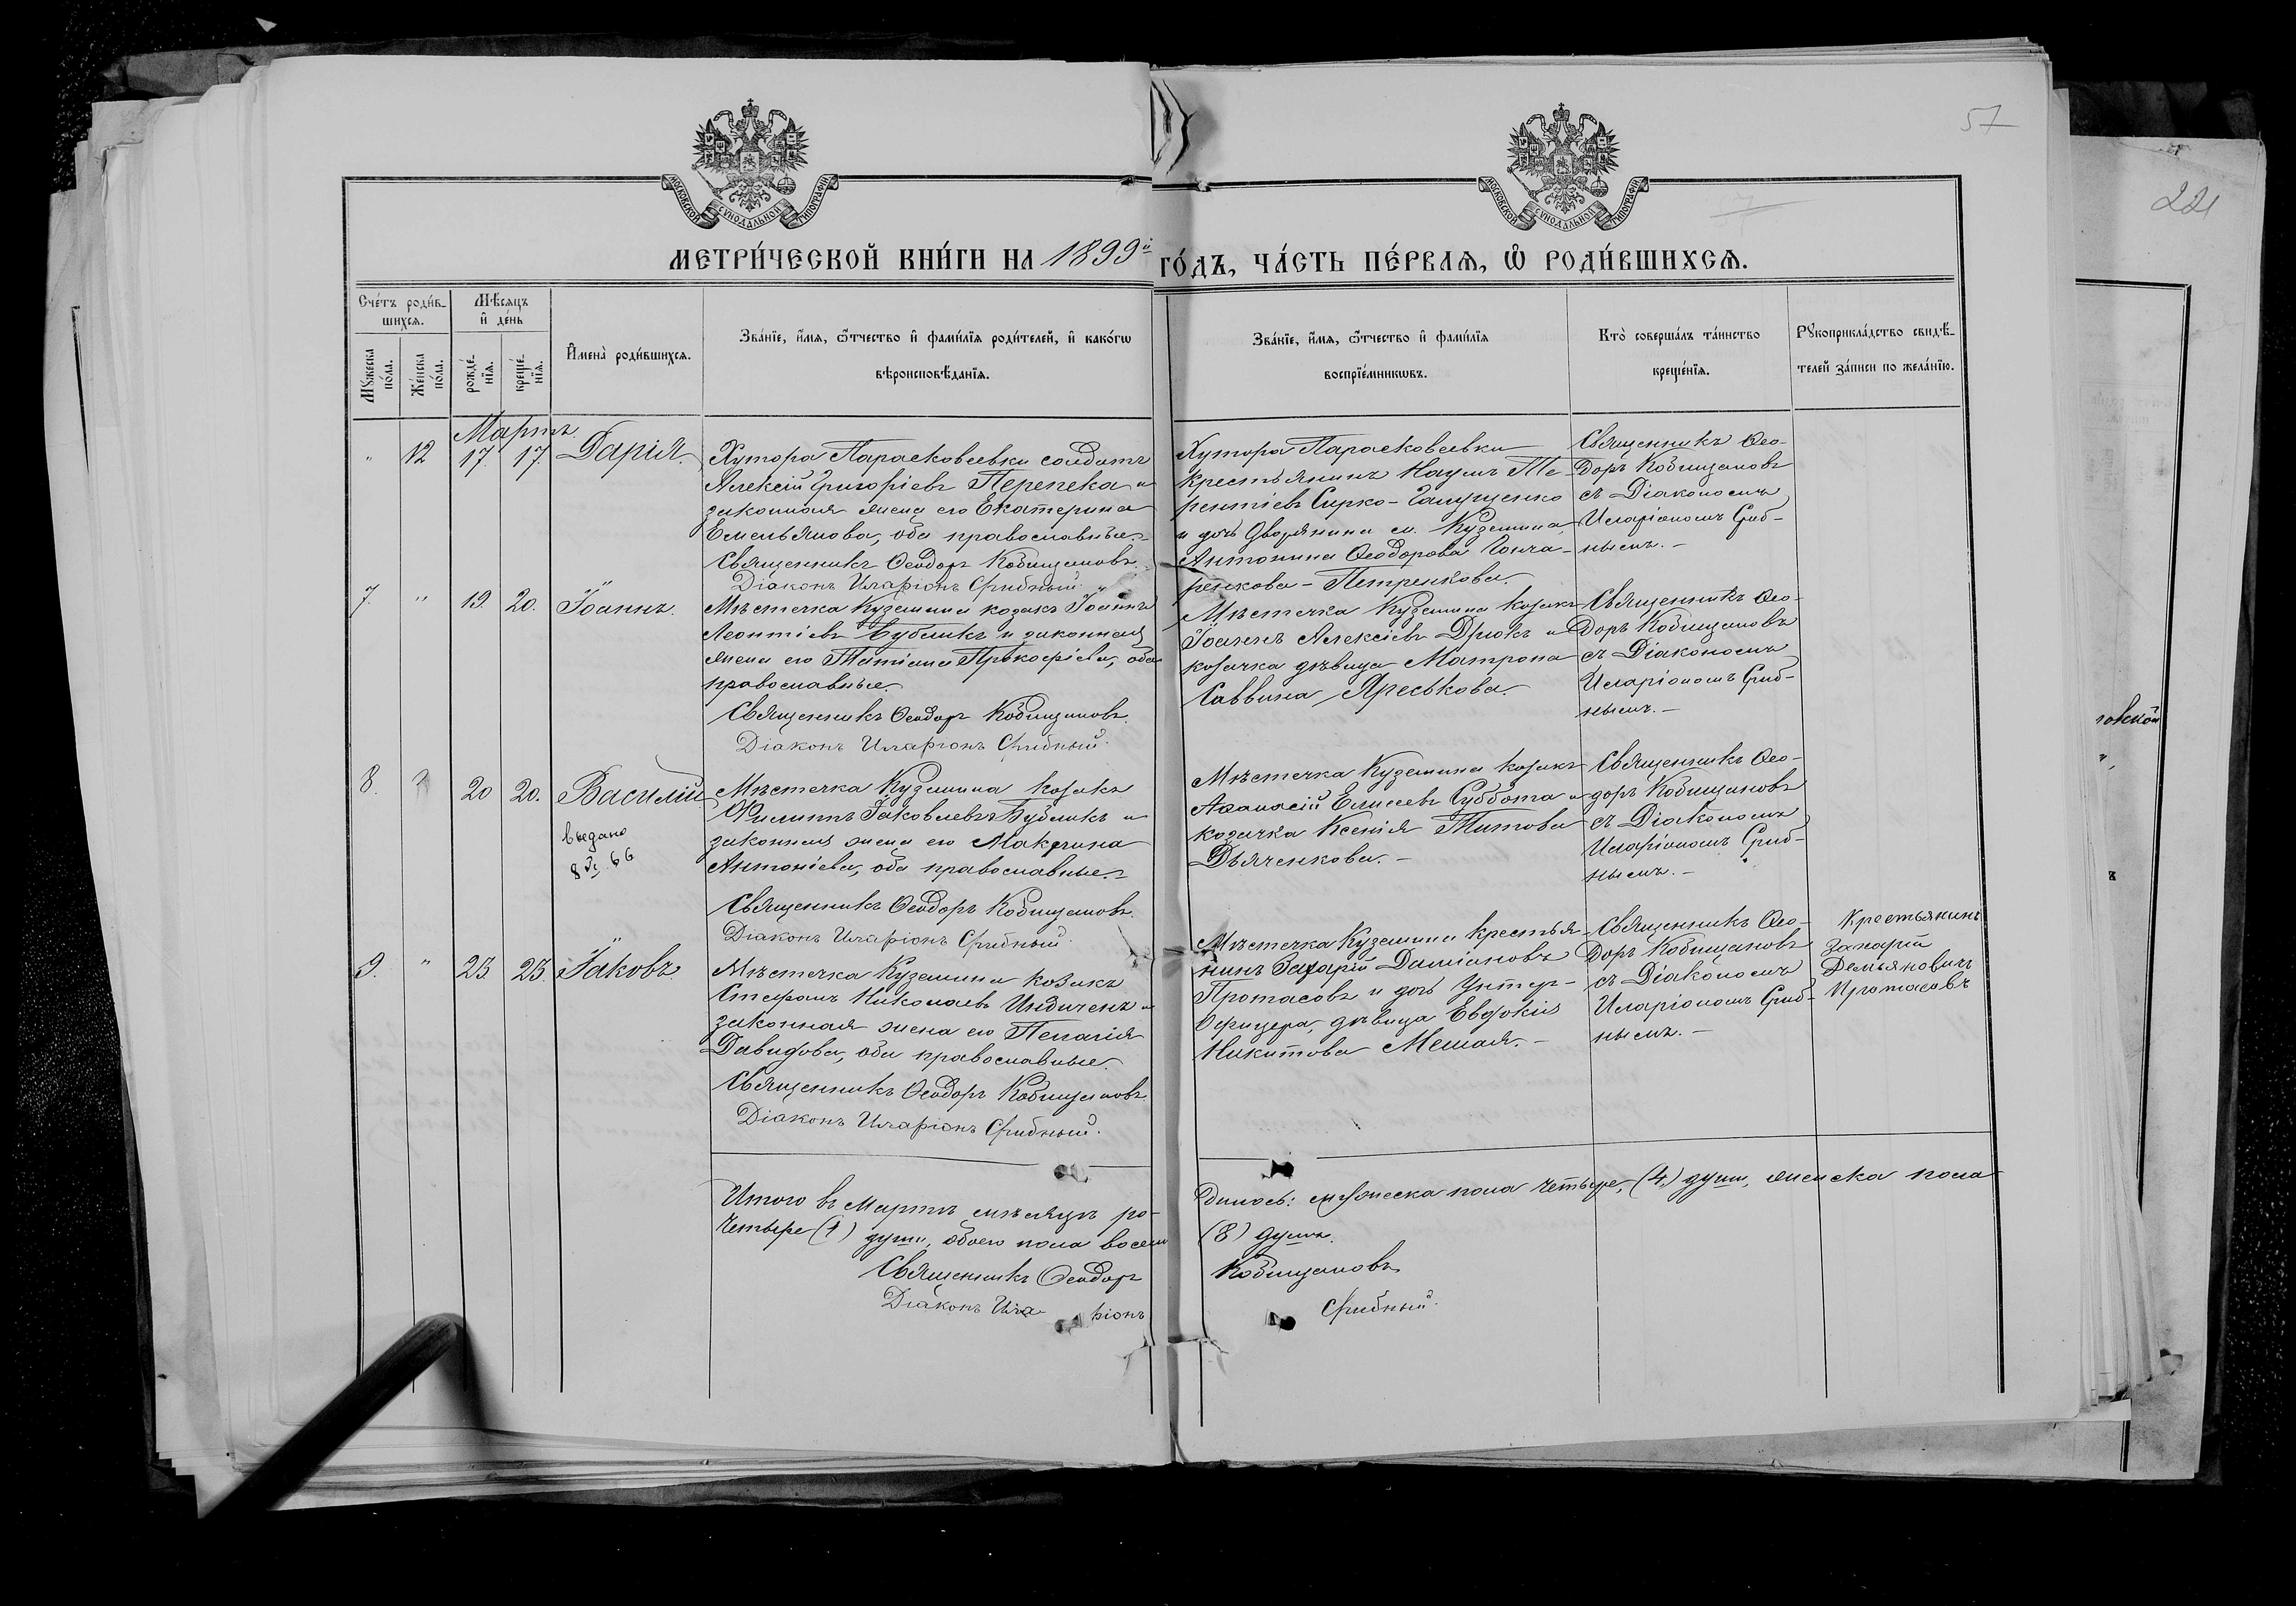 57
221
МОСКОВСКОЙ СѴНОДАЛЬНОЙ ТИПОГРАФІИ
МОСКОВСКОЙ СѴНОДАЛЬНОЙ ТИПОГРАФІИ
МЕТРИ́ЧЕСКОЙ КНИ́ГИ НА 1899й ГО́ДЪ, ЧА́СТЬ ПЕ́РВАЯ, Ѡ РОДИ́ВШИХСЯ.
Сче́тъ роди́в-
шихся.
Мѣ́сяцъ
и де́нь
Му́жеска по́ла.
Же́нска по́ла.
рожде́-
нія.
креще́-
нія.
Имена̀ роди́вшихся.
Зва́ніе, и́мя, ѻ҆́тчество и фами́лія роди́телей, и како́гѡ
вѣроисповѣ́данія.
Зва́ніе, и́мя, ѻ҆́тчество и фами́лія
воспріе́мникѡвъ.
Кто̀ соверша́лъ та́инство
креще́нія.
Рꙋкоприкла́дство свидѣ́-
телей за́писи по жела́нію.
Мартъ
" 12 17. 17. Дарія.
Хутора Парасковеевки солдатъ
Алексій Григоріевъ Перепека и
законная жена его Екатерина
Емельянова, оба православные.-
Священникъ Ѳеодоръ Кобищановъ.
Діаконъ Иларіонъ Грибный.
Хутора Параскавеевки
крестьянинъ Наумъ Те-
рентіевъ Сирко-Галущенко
и дочь Дворянина м. Куземина,
Антонина Ѳеодорова Гонча-
ренкова-Петренкова.
Священникъ Ѳео-
доръ Кобищановъ
съ Діакономъ
Иларіономъ Гриб-
нымъ.-
7. " 19. 20. Іоаннъ.
Мѣстечка Куземина козакъ Іоаннъ
Леонтіевъ Бубликъ и законная
жена его Татіана Прокофіева, оба
православные.
Священникъ Ѳеодоръ Кобищановъ.
Діаконъ Иларіонъ Грибный.
Мѣстечка Куземина козакъ
Іоаннъ Алексіевъ Дрюкъ и
козачка дѣвица Матрона
Саввина Яреськова.
Священникъ Ѳео-
доръ Кобищановъ
съ Діакономъ
Иларіономъ Гриб-
нымъ.-
8. " 20 20. Василій
выдано
Мѣстечка Куземина козакъ
Филиппъ Іаковлевъ Бубликъ и
законная жена его Макрина
Антоніева, оба православные.-
Священникъ Ѳеодоръ Кобищановъ.
Діаконъ Иларіонъ Грибный.
Мѣстечка Куземина козакъ
Аѳанасій Елисеевъ Суббота и
козачка Ксенія Титова
Дьяченкова.-
Священникъ Ѳео-
доръ Кобищановъ
съ Діакономъ
Иларіономъ Гриб-
нымъ.-
9. " 23 23. Іаковъ.
Мѣстечка Куземина козакъ
Стефанъ Николаевъ Индиченъ и
законная жена его Пелагія
Давидова, оба православные.
Священникъ Ѳеодоръ Кобищановъ
Діаконъ Иларіонъ Грибный.
Мѣстечка Куземина крестья-
нинъ Захарій Даміановъ
Протасовъ и дочь Унтер-
Офицера, дѣвица Евдокія
Никитова Мешая.-
Священникъ Ѳео-
доръ Кобищановъ
съ Діакономъ
Иларіономъ Гриб-
нымъ.-
Крестьянинъ
Захарій
Демьяновичъ
Протасовъ
Итого въ Мартѣ мѣсяцѣ ро-
дилось: мужеска пола четыре, (4) души, женска пола
четыре (4) души, обоего пола восемь
(8) душъ.
Священникъ Ѳеодоръ Кобищановъ
Діаконъ Иларіонъ Грибный.